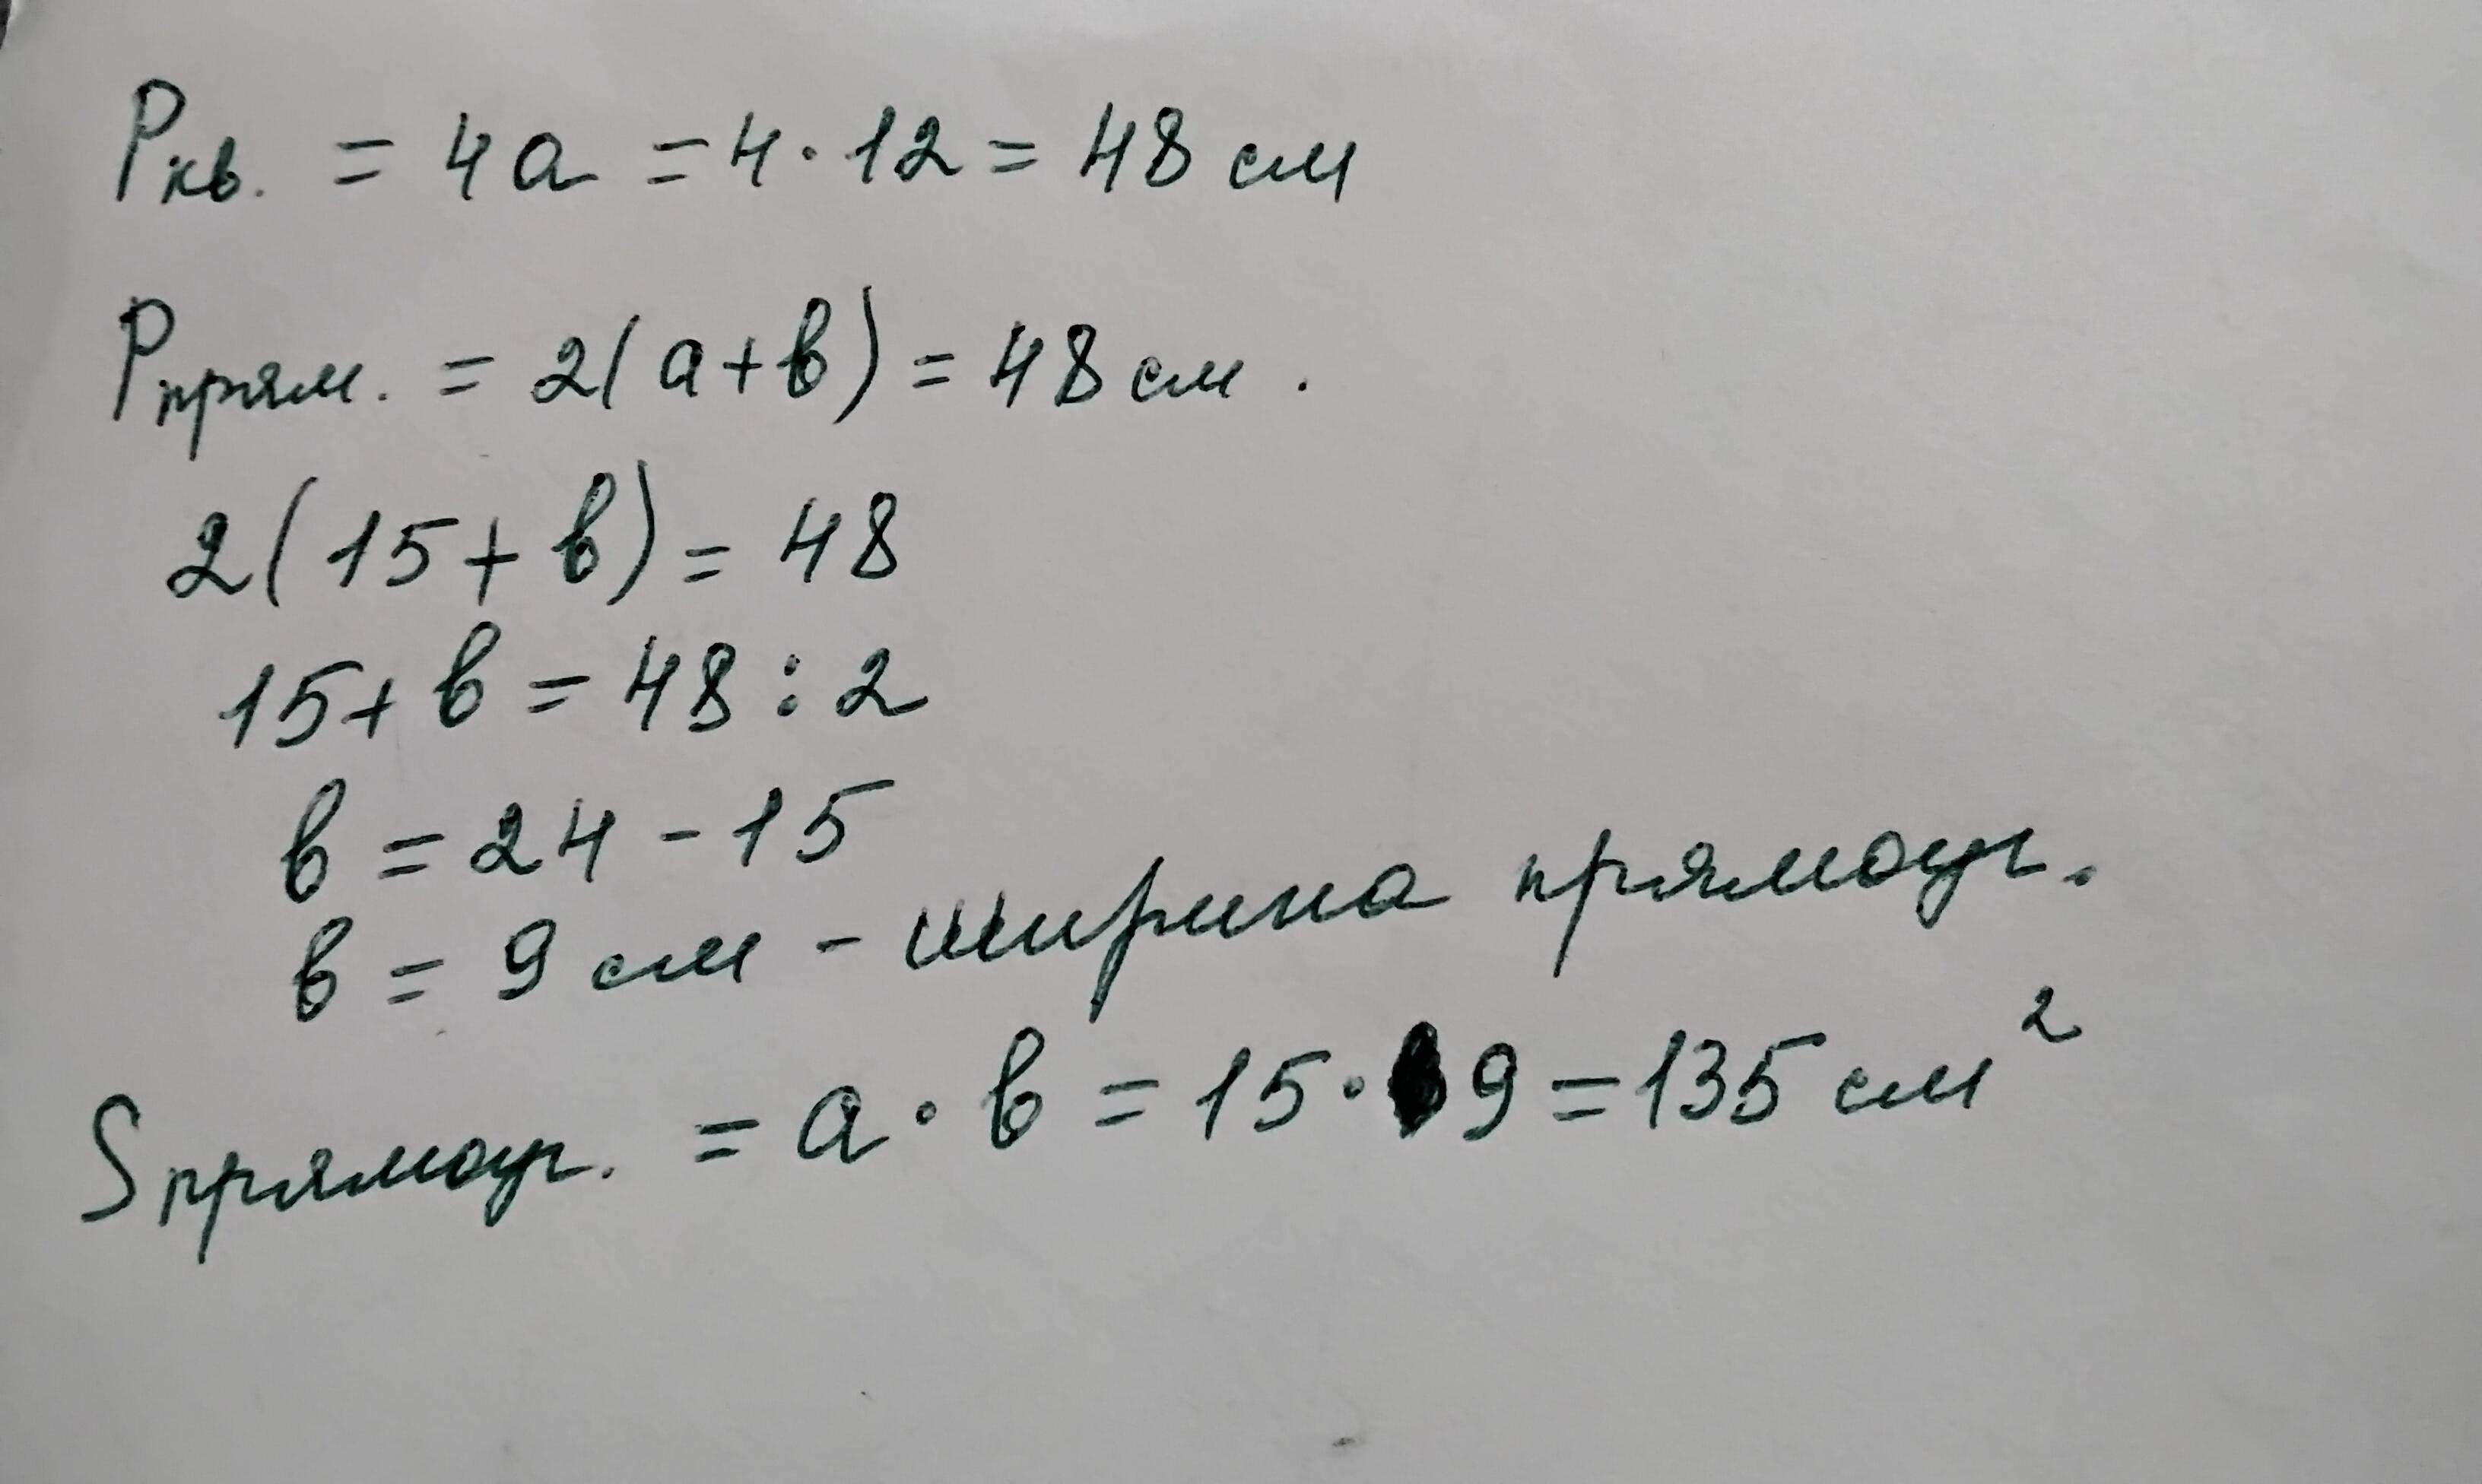 Pкв. = 4a = 4·12 = 48 см
Pпрям. = 2(a+b) = 48 см.
2(15+b) = 48
15+b = 48:2
b = 24-15
b = 9 см - ширина прямоуг.
Sпрямоуг. = a·b = 15·9 = 135 см²